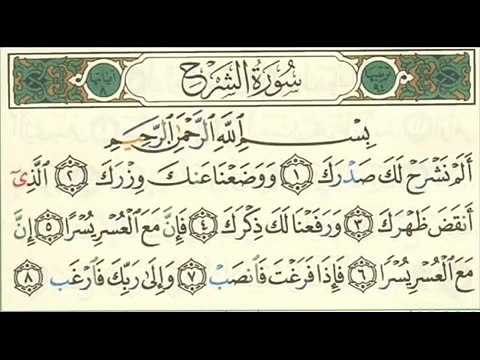 ترتيبها ٩٤ سُورَةُ الشَّرْحِ آياتها ٨
بِسْمِ اللَّهِ الرَّحْمَٰنِ الرَّحِيمِ
أَلَمْ نَشْرَحْ لَكَ صَدْرَكَ ١ وَوَضَعْنَا عَنكَ وِزْرَكَ ٢ الَّذِىٓ
أَنقَضَ ظَهْرَكَ ٣ وَرَفَعْنَا لَكَ ذِكْرَكَ ٤ فَإِنَّ مَعَ الْعُسْرِ يُسْرًا ٥ إِنَّ
مَعَ الْعُسْرِ يُسْرًا ٦ فَإِذَا فَرَغْتَ فَانصَبْ ٧ وَإِلَىٰ رَبِّكَ فَارْغَب ٨